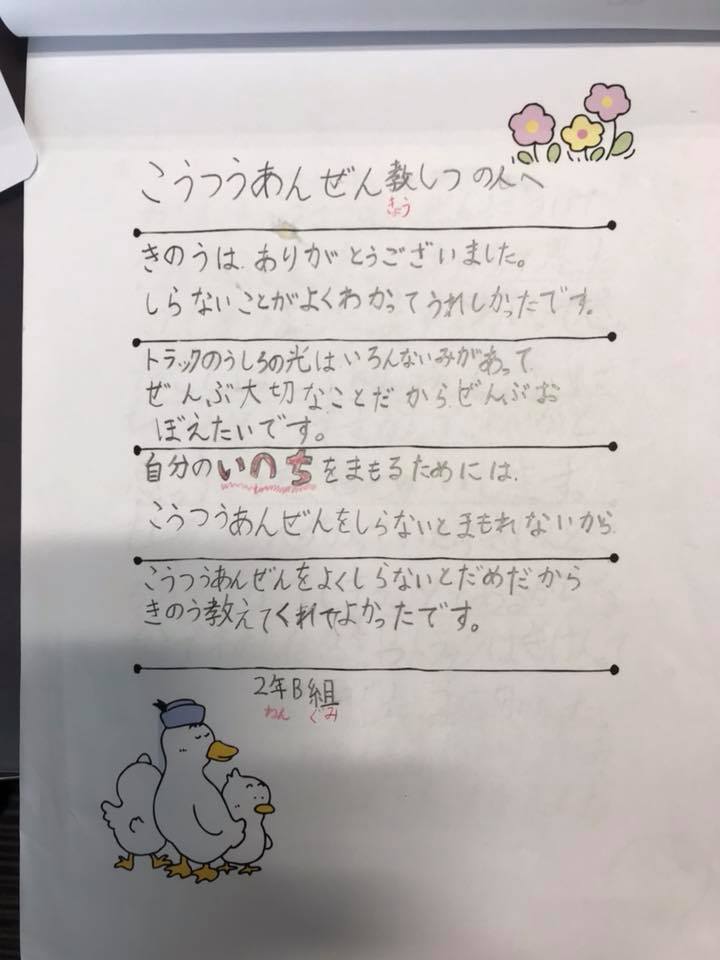 こうつうあんぜん教しつの人へ
きょう
きのうは、ありがとうございました。
しらないことがよくわかってうれしかったです。
トラックのうしろの光はいろんないみがあって、
ぜんぶ大切なことだから、ぜんぶお
ぼえたいです。
自分のいのちをまもるためには、
こうつうあんぜんをしらないとまもれないから、
こうつうあんぜんをよくしらないとだめだから
きのう教えてくれてよかったです。
2年B組
ねん ぐみ